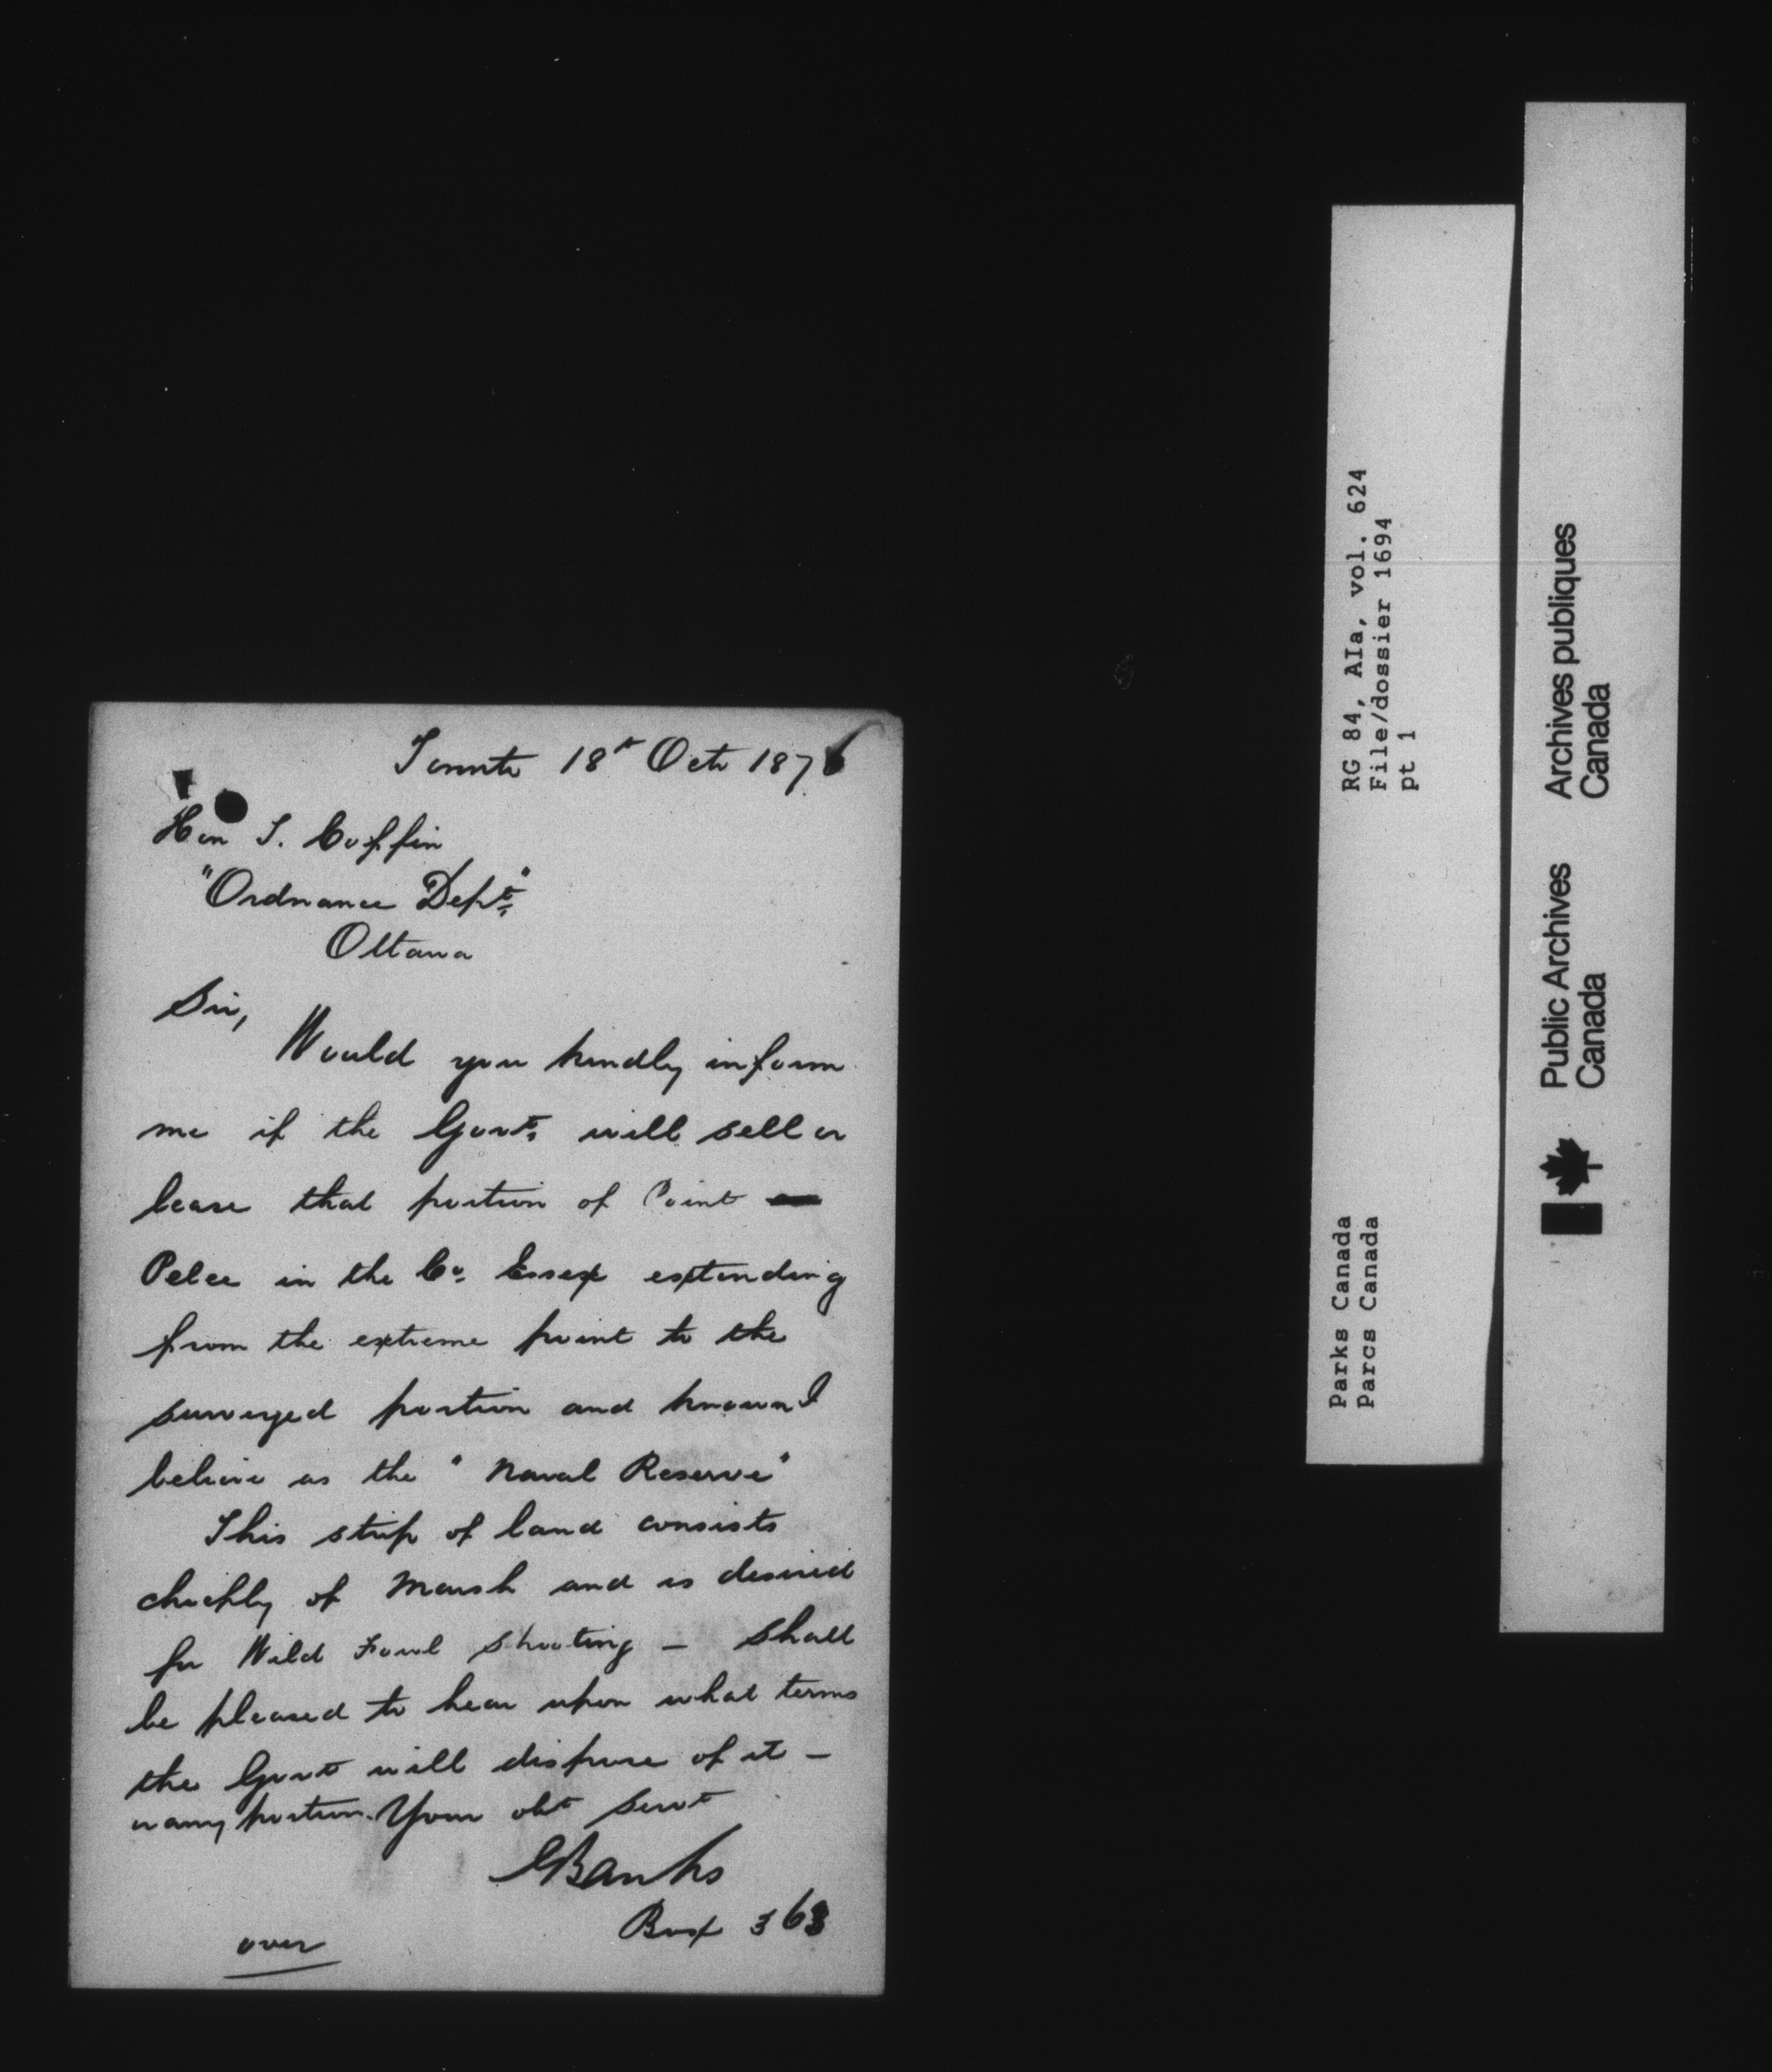 Toronto 18th Octr 1876
Hon T. Coffin
"Ordnance Dept"
Ottawa
Sir,
Would you kindly inform
me if the Govt. will sell or
lease that portion of Point
Pelee in the Co. Essex extending
from the extreme point to the
surveyed portion and known I
believe as the "Naval Reserve"
This strip of land consists
chiefly of Marsh and is desired
for Wild Fowl shooting – shall
be pleased to hear upon what terms
the Govt will dispose of it –
or any portion. Your obt Servt
GBanks
Box 363
over
RG 84, AIa, vol. 624
File/dossier 1694
pt 1
Parks Canada
Parcs Canada
Public Archives
Canada
Archives publiques
Canada